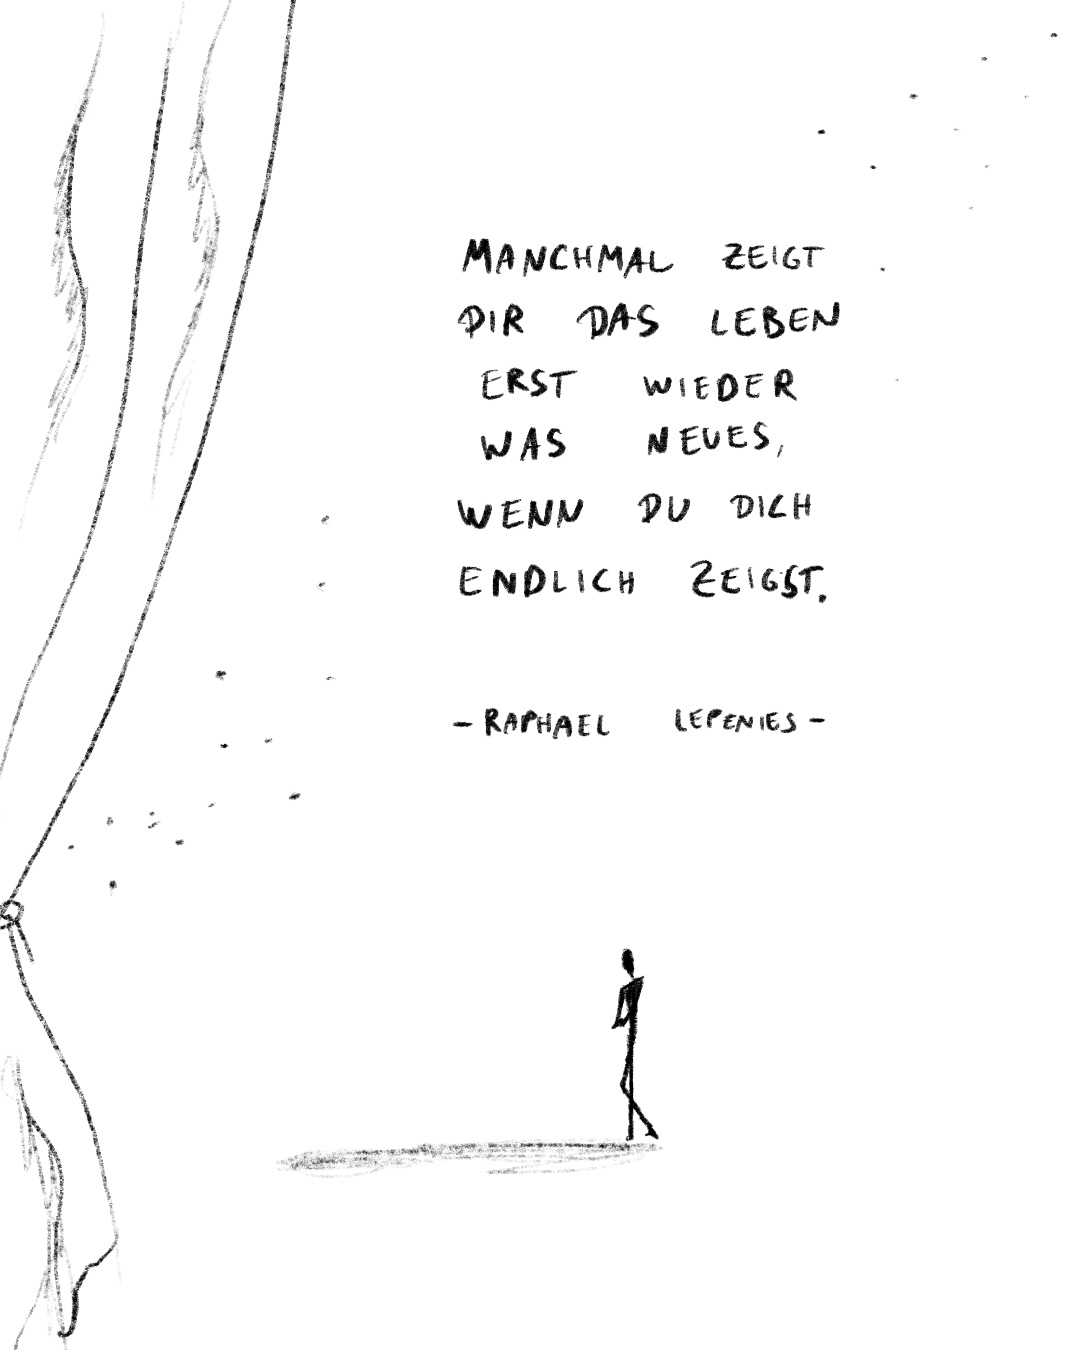 MANCHMAL ZEIGT
DIR DAS LEBEN
ERST WIEDER
WAS NEUES,
WENN DU DICH
ENDLICH ZEIGST.
- RAPHAEL LEPENIES -